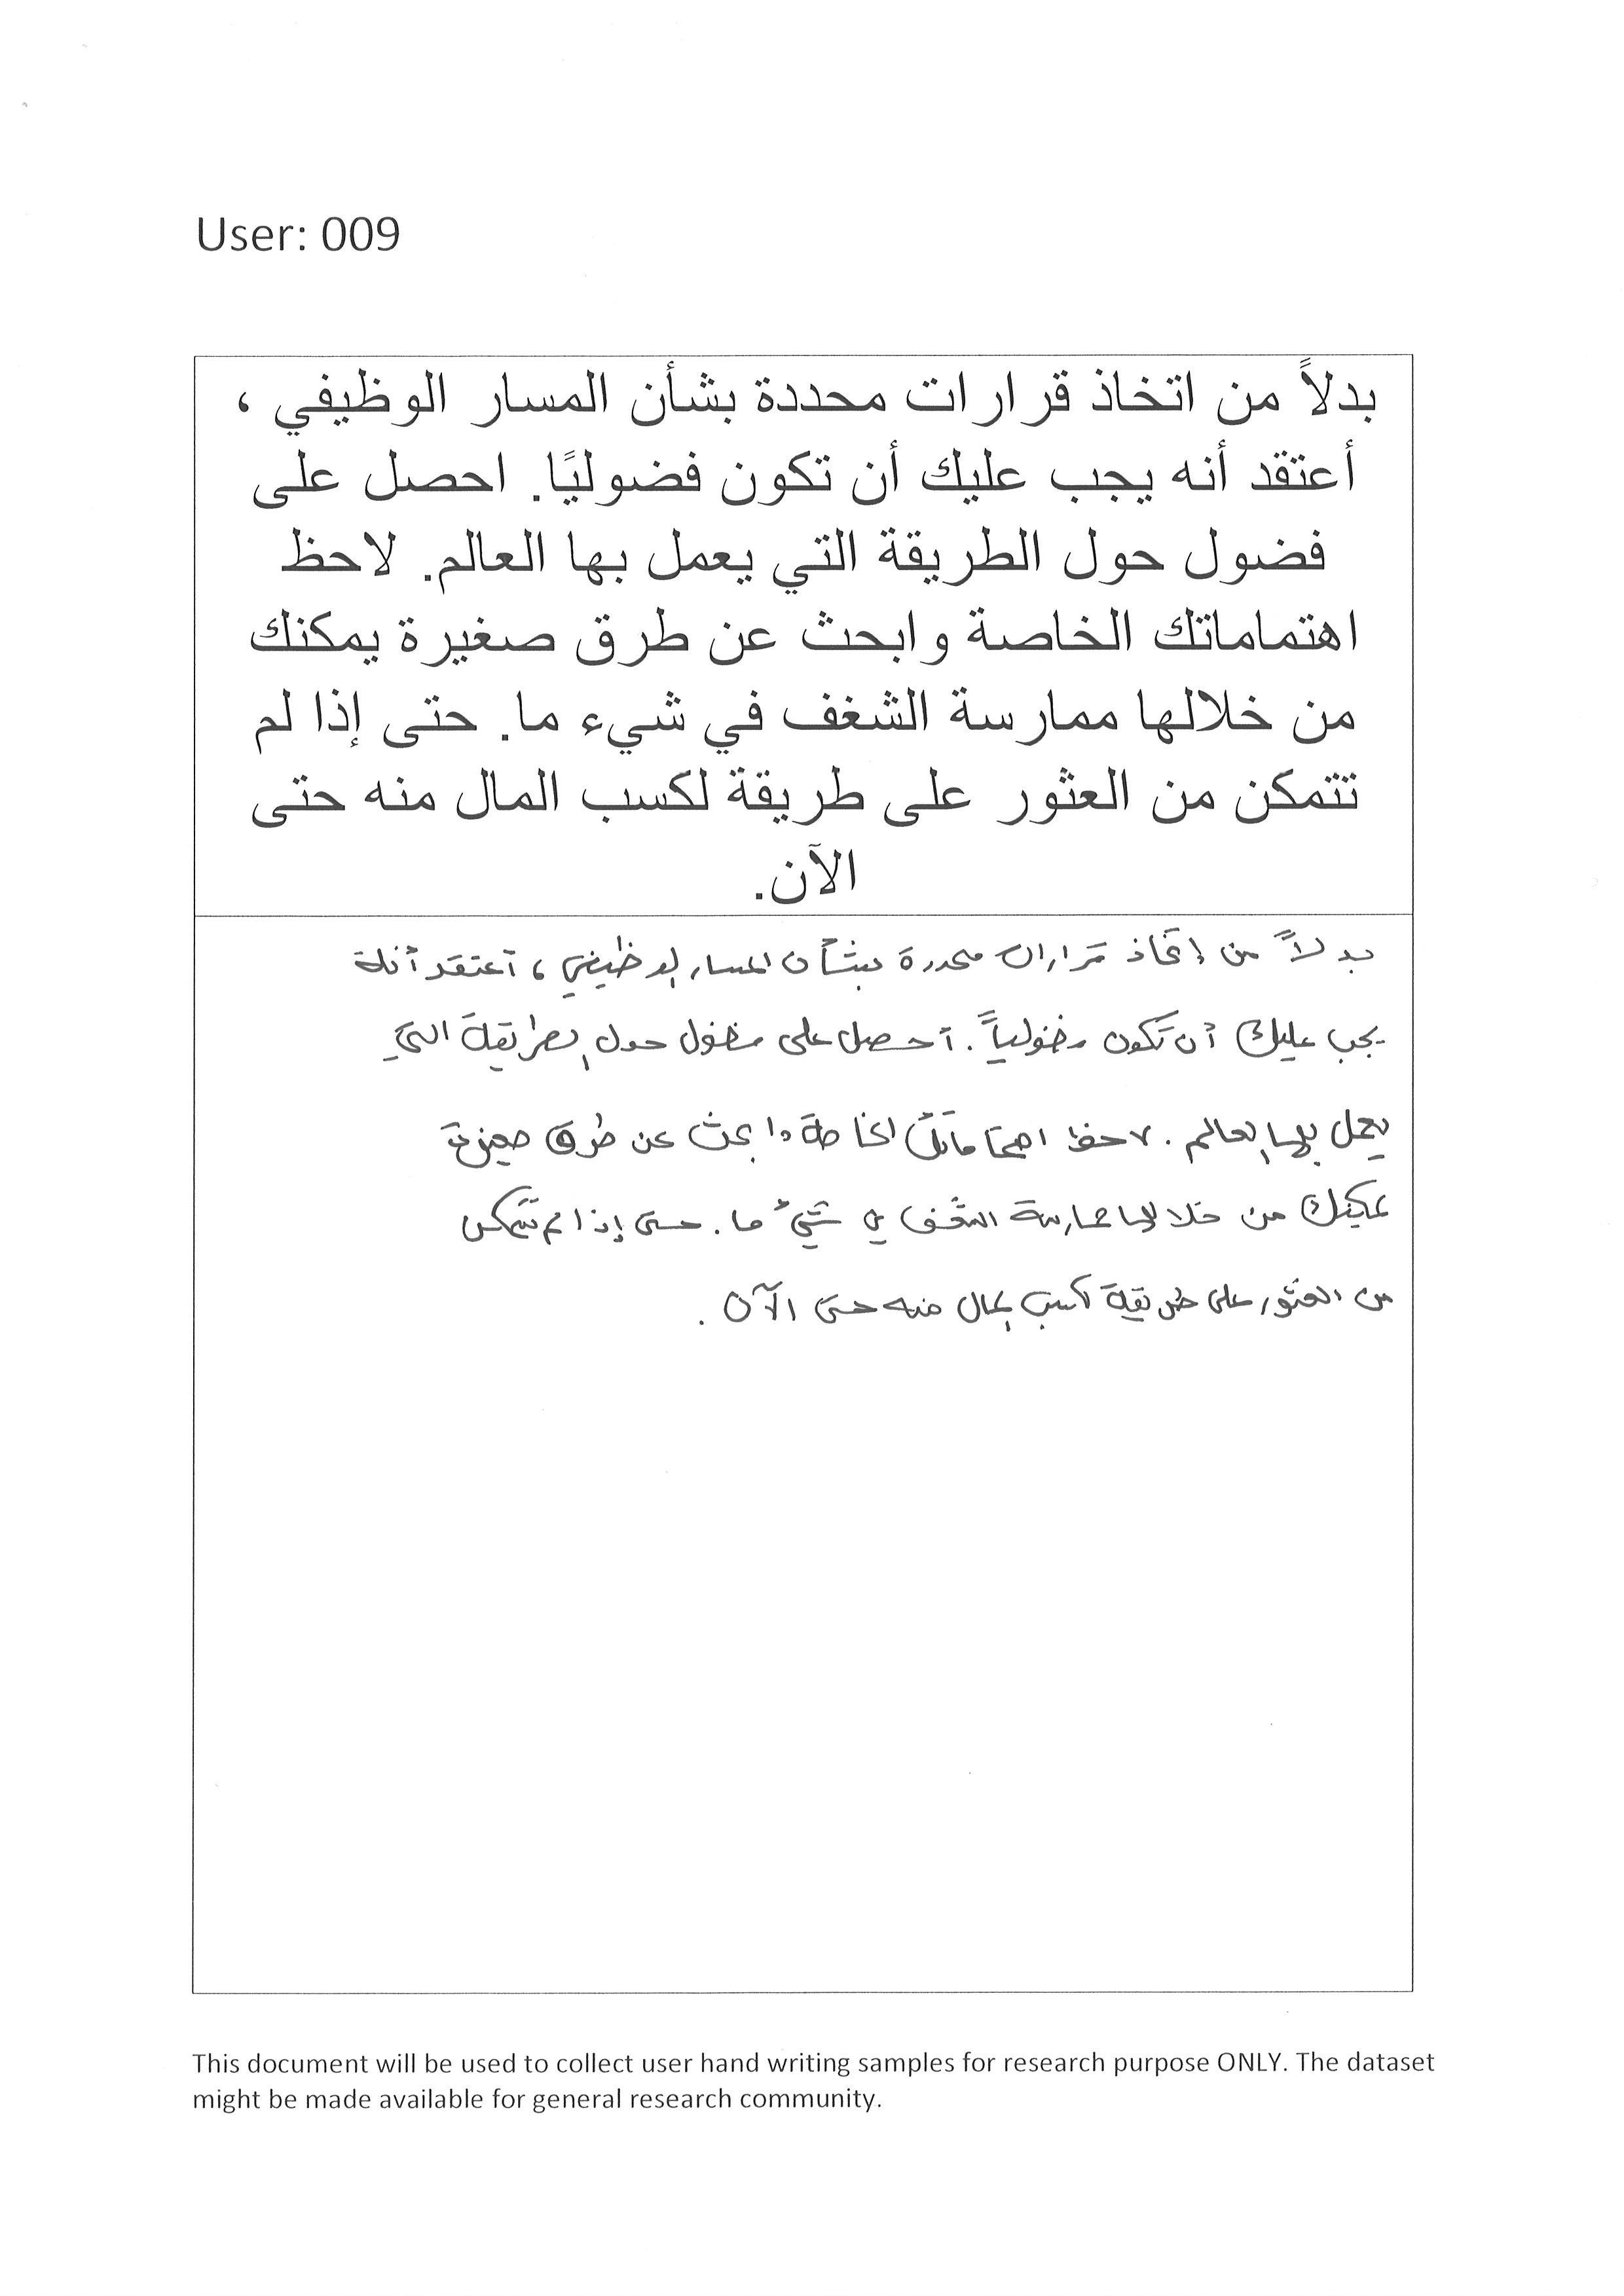 User: 009
بدلاً من اتخاذ قرارات محددة بشأن المسار الوظيفي ،
أعتقد أنه يجب عليك أن تكون فضوليًا. احصل على
فضول حول الطريقة التي يعمل بها العالم. لاحظ
اهتماماتك الخاصة وابحث عن طرق صغيرة يمكنك
من خلالها ممارسة الشغف في شيء ما. حتى إذا لم
تتمكن من العثور على طريقة لكسب المال منه حتى
الآن.
بدلاً من إتخاذ قرارات محددة بشأن المسار الوظيفي ، أعتقد أنة
يجب عليك أن تكون فضولياً. أحصل على فضول حول الطريقة التي
يعمل بها العالم. لاحظ اهتماماتك الخاصة وابحث عن طرق صغيرة
يمكنك من خلالها ممارسة الشغف في شيء ما. حتى إذا لم تتمكن
من العثور على طريقة لكسب المال منه حتى الآن.
This document will be used to collect user hand writing samples for research purpose ONLY. The dataset
might be made available for general research community.